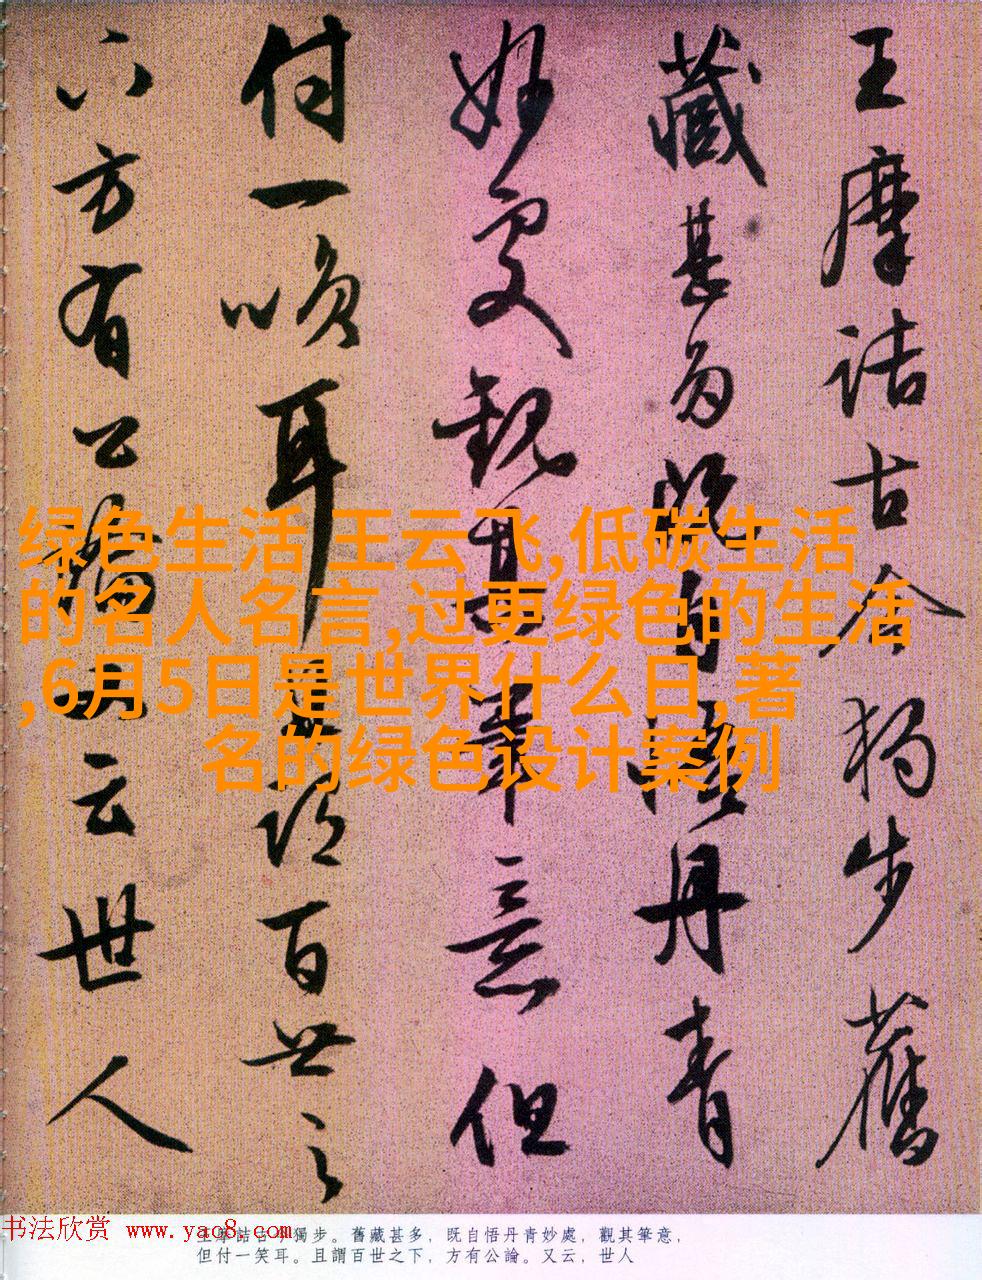 王摩詰古今獨步舊
藏甚多既自悟丹青
妙處觀其筆意但
付一笑耳且謂百世之
下方有公論又云世人
绿色生活 王云飞,低碳生活
的名人名言,过更绿色的生活
,6月5日是世界什么日,著
名的绿色设计案例
书法欣赏 www.yac8.com
王摩詰古今獨步。舊藏甚多,既自悟丹青妙處,觀其筆意,
但付一笑耳。且謂百世之下,方有公論。又云,世人